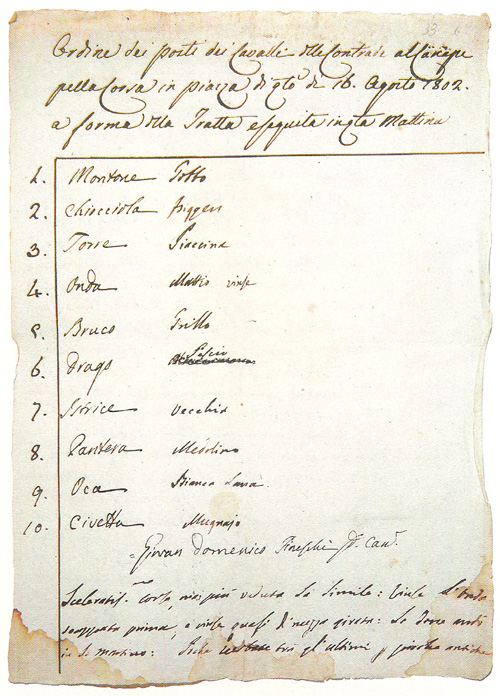 Ordine dei posti dei Cavalli delle Contrade al Canape
pella Corsa in piazza di qto dì 16. Agosto 1802.
a forma della Tratta eseguita in qta Mattina
1. Montone Gobbo
2. Chiocciola
3. Torre Piaccina
4. Onda Mattio vinse
5. Bruco Grillo
6. Drago Piscio
7. Istrice Vecchia
8. Pantera Medolino
9. Oca Bianca Lana
10. Civetta Mugnajo
Giovan Domenico Fineschi Canc.
Sceleratis. corsa, mai più veduta la simile: Vinse l'Onda
scappata prima, e vinse quasi di mezzo giro: la Torre andò
in S. martino: gl'ultimi